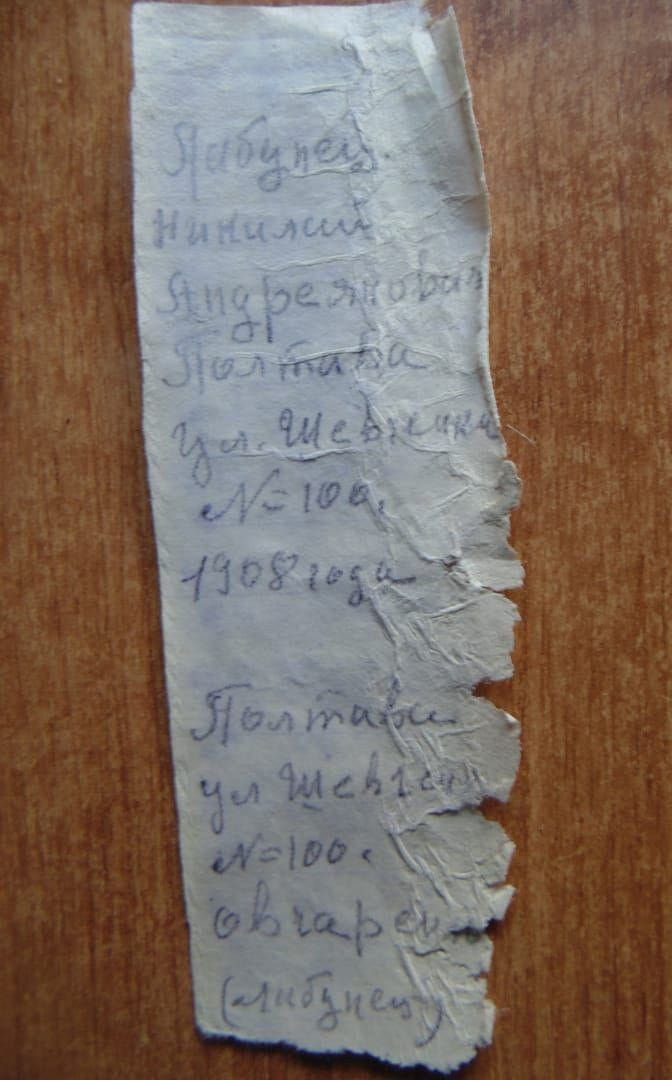 Лабунец
Никилий
Андреянович
Полтава
ул. Шевченка
N=100.
1908 года
Полтава
ул Шевченк
N=100.
Овчаренко
(Лабунец)